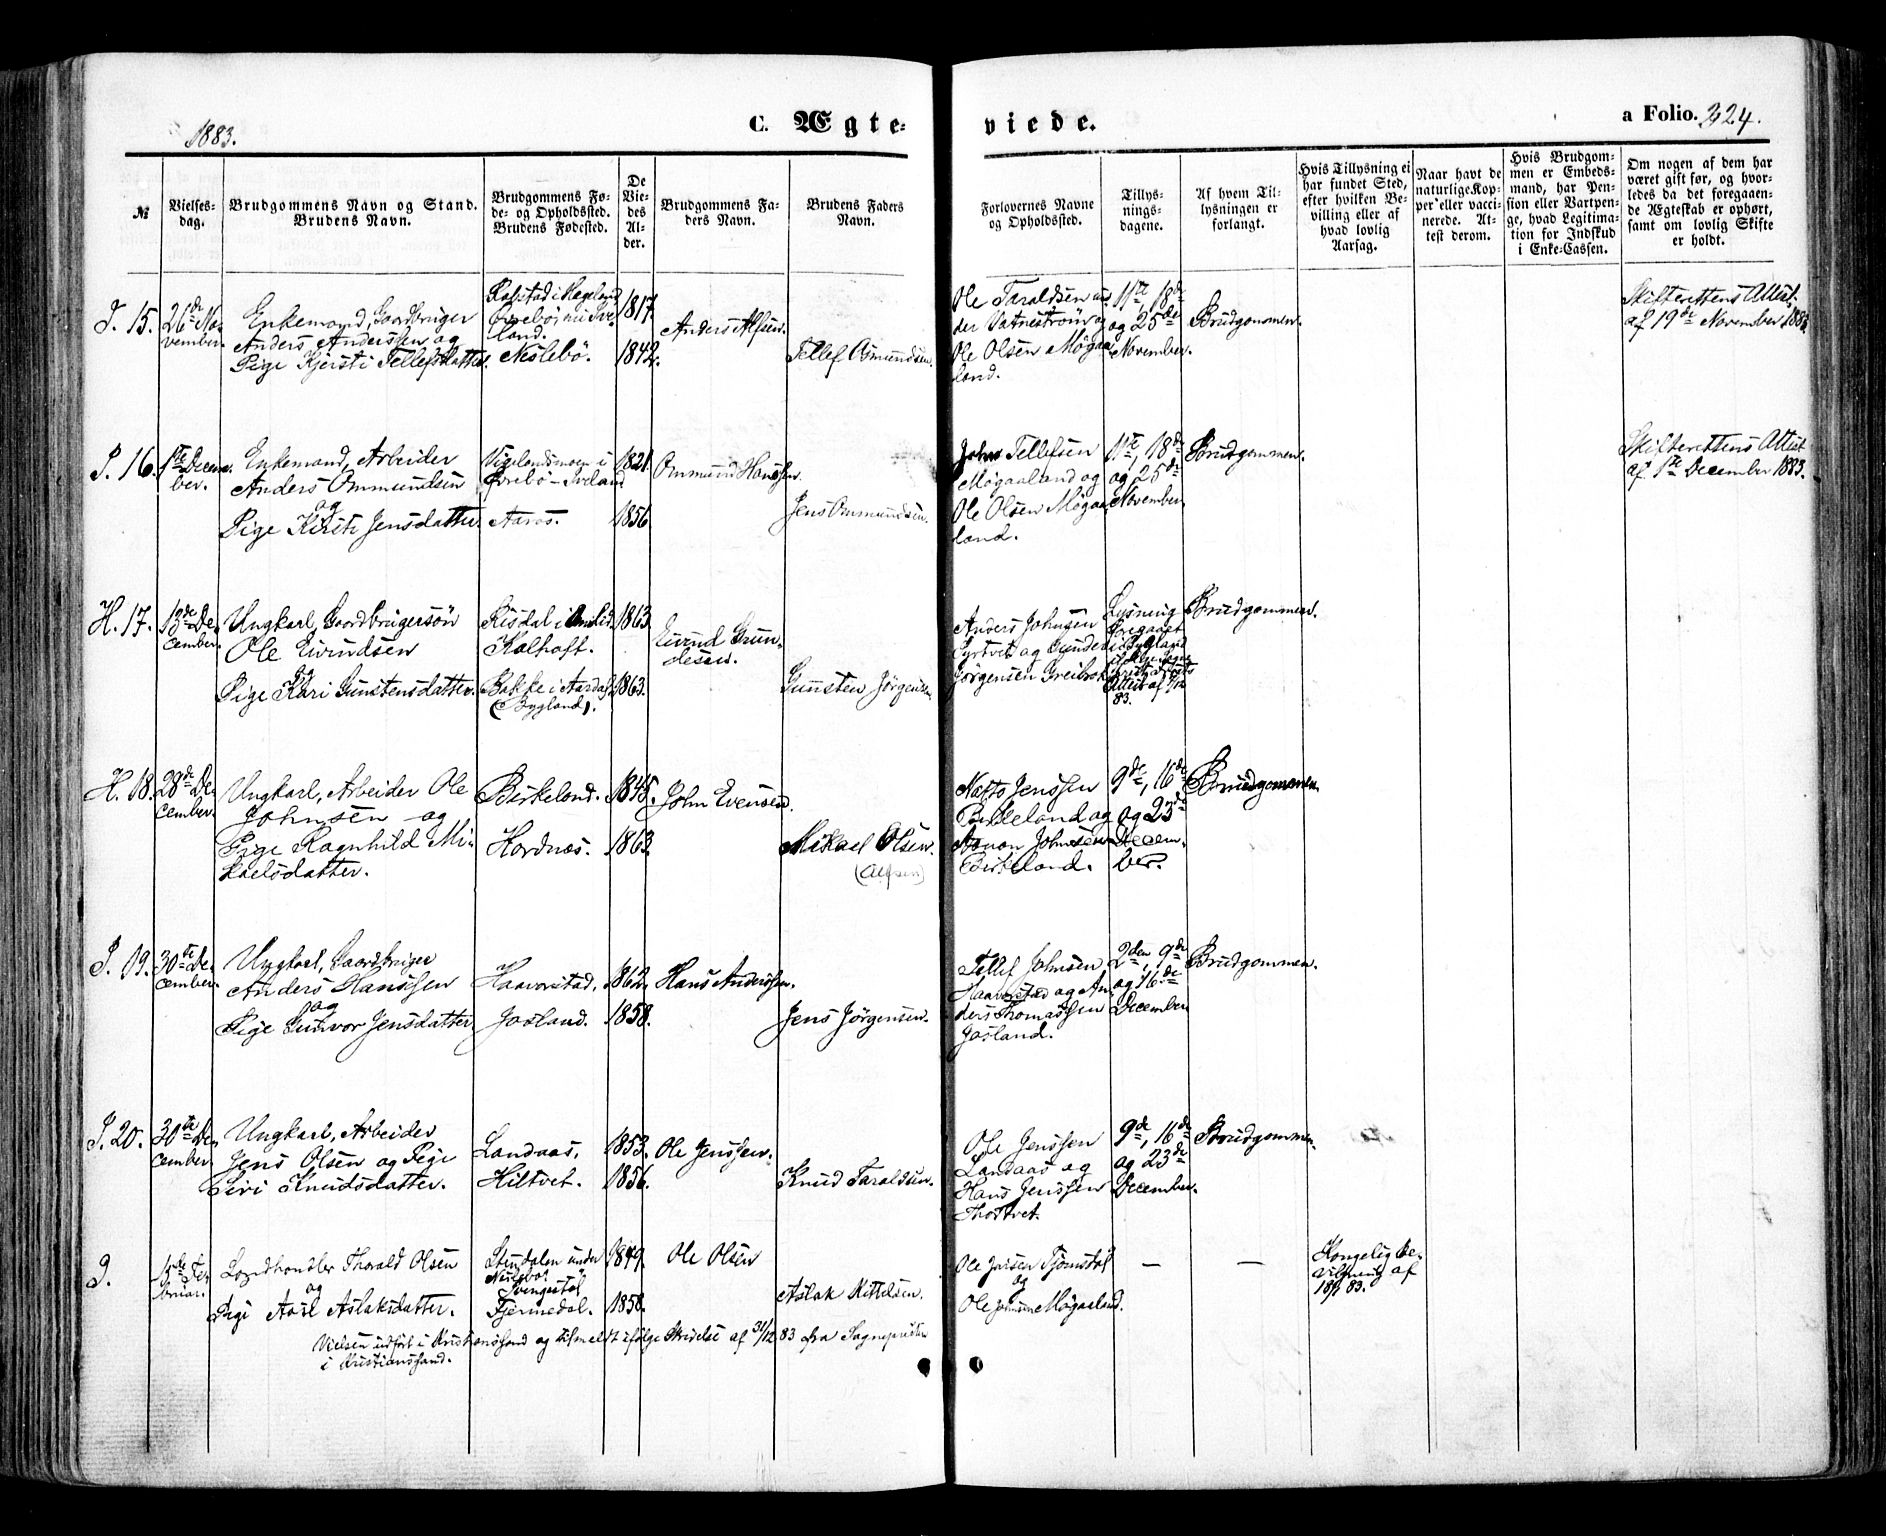 1883.
C. Ægte-
viede.
a Folio. 224.
№
Vielses-
dag.
Brudgommens Navn og Stand.
Brudens Navn.
Brudgommens Fø-
de- og Opholdssted.
Brudens Fødested.
De
Vie-
des
Al-
der.
Brudgommens Fa-
ders Navn.
Brudens Faders
Navn.
Forlovernes Navne
og Opholdssted.
Tillys-
nings-
dagene.
Af hvem Til-
lysningen er
forlangt.
Hvis Tillysning ei
har fundet Sted,
efter hvilken Be-
villing eller af
hvad lovlig
Aarsag.
Naar havt de
naturlige Kop-
per eller vacci-
nerede. At-
test derom.
Hvis Brudgom-
men er Embeds-
mand, har Pen-
sion eller Vartpen-
ge, hvad Legitima-
tion for Indskud
i Enke-Cassen.
Om nogen af dem har
været gift før, og hvor-
ledes da det foregaaen-
de Ægteskab er ophørt,
samt om lovlig Skifte
er holdt.
I. 15.
26de No-
vember.
Enkemand, Gaardbruger
Anders Anderssen og
Pige Kjersti Tellefsdatter.
i Hægeland
Øvrebö
land.
Neslebö.
1817.
1842.
Anders Alfsen.
Tellef Osmundsen.
Ole Taraldsen un-
der Vatneström og
Ole Olsen Mögaa-
land.
11te, 18de
og 25de
November.
Brudgommen.
Skifterettens Attest
af 19de November 1883.
I. 16.
1ste Decem-
ber.
Enkemand, Arbeider
Anders Ommundsen
og
Pige Kirsti Jensdatter
Vigelandsmoen i
Øvrebö - Iveland
Aaros.
1821.
1856.
Ommund Hanssen
Jens Ommundsen.
John Tellefsen
Mögaaland og
Ole Olsen Mögaa-
land.
11te, 18de
og 25de
November
Brudgommen.
Skifterettens Attest
af 1ste December 1883.
H. 17.
13de De-
cember.
Ungkarl, Gaardbrugersön
Ole Eivindsen
og
Pige Kari Gunstensdatter.
Risdal i Omlid.
Kalhoft.
Bakke i Aardal
(Bygland).
1863.
1863.
Eivind Grun-
desen.
Gunsten Jörgensen
Anders Johnsen
Tyrtvet og Gunder
Jörgensen Greibrok
Lysning
foregaaet
i Bygland
Attest af
83.
Brudgommen.
H. 18.
28de De-
cember.
Ungkarl, Arbeider Ole
Johnsen og
Pige Ragnhild Mi-
kaelsdatter.
Birkeland.
Hordnæs.
1845.
1863.
John Evensen.
Mikael Olsen.
(Alfsen)
Natto Jenssen
Birkeland og
Aanon Johnsen
Birkeland.
9de, 16de
og 23de
Decem-
ber.
Brudgommen.
I. 19.
30te De-
cember.
Ungkarl, Gaardbruger
Anders Hanssen
og
Pige Gunvor Jensdatter
Haavorstad.
Jorland.
1862.
1858.
Hans Anderssen.
Jens Jörgensen.
Tellef Johnsen
Haavorstad og An-
ders Thomassen
Jorland.
2den, 9de
og 16de
December
Brudgommen.
I. 20.
30te De-
cember.
Ungkarl, Arbeider
Jens Olsen og Pige
Siri Knudsdatter.
Landaas.
Hiltvet.
1853.
1856.
Ole Jenssen.
Knud Taraldsen.
Ole Jenssen
Landaas og
Hans Jenssen
Thortvet.
9de, 16de
og 23de
December.
Brudgommen
I.
Fe-
bruar.
Landhandler Thorald Olsen
og
Pige Aasil Aslaksdatter.
Stendalen under
Tjermedal.
1849.
1858.
Ole Olsen
Aslak Kittelsen.
Ole Jensen Tjömstöl
og
Ole Johnsen Mögaaland.
—
—
Kongelig Be-
vilgning af
83.
Vielsen udført i Kristianssand og tilmeldt ifølge Skrivelse af 31/12 83 fra Sognepresten
i Kristianssand.